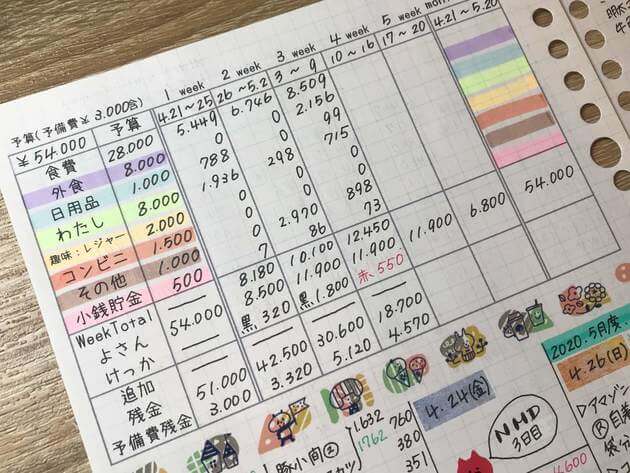 予算(予備費¥3.000含) 1 week 2 week 3 week 4 week 5 week
¥54.000 予算 4.21～25 26～5.2 3～9 10～16 17～20 4.21～5.20
食費 28.000 5.449 6.746 8.509
外食 8.000 0 0 2.156
日用品 1.000 788 0 99
わたし 8.000 1.936 298 715
趣味:レジャー 2.000 0 0
コンビニ 1.500 0 0
その他 1.000 0 2.970 898
小銭貯金 500 7 86 73
WeekTotal 8.180 10.100 12.450
よさん 54.000 8.500 11.900 11.900 11.900 6.800 54.000
けっか 黒320 黒1.800 赤550
追加
残金 51.000 42.500 30.600 18.700
予備費残金 3.000 3.320 5.120 4.570
4.24(金)
NHD
3日目
2020.5月度
4.26(日)
▷アマゾン
豚小間②
1.632
1762
760
380
351
4.600